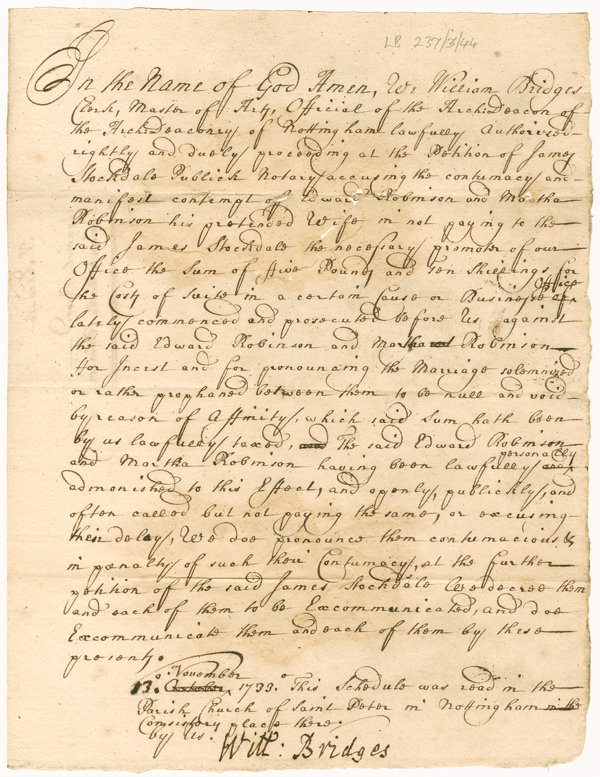 LB 237/3/44
In the Name of God Amen, We William Bridges
Clerk, Master of Arts, Official of the ArchDeacon of
the ArchDeaconry of Nottingham lawfully Authorized
rightly and duely proceeding at the Petition of James
Stockdale Publick Notary accusing the contumacy and
manifest contempt of Edward Robinson and Martha
Robinson his pretended Wife in not paying to the
said James Stockdale the necessary promoter of our
Office the Sum of Five Pounds and Ten Shillings for
the Costs of Suite in a certain Cause or Business of Office
lately commenced and prosecuted before Us against
the said Edward Robinson and Martha Robinson
For Incest and for pronouncing the Marriage solemnized
or rather prophaned between them to be null and void
by reason of Affinity, which said Sum hath been
by us lawfully taxed, and The said Edward Robinson
and Martha Robinson having been lawfully personally
admonished to this Effect, and openly, publickly, and
often called but not paying the same, or excusing
their delay, We doe pronounce them contumacious &
in penalty of such their Contumacy, at the further
petition of the said James Stockdale We decree them
and each of them to be Excommunicated, and doe
Excommunicate them and each of them by these
presents.
November
13.o October 1733.o This Schedule was read in the
Parish Church of Saint Peter in Nottingham in the
Consistory place there.
by us. Will: Bridges